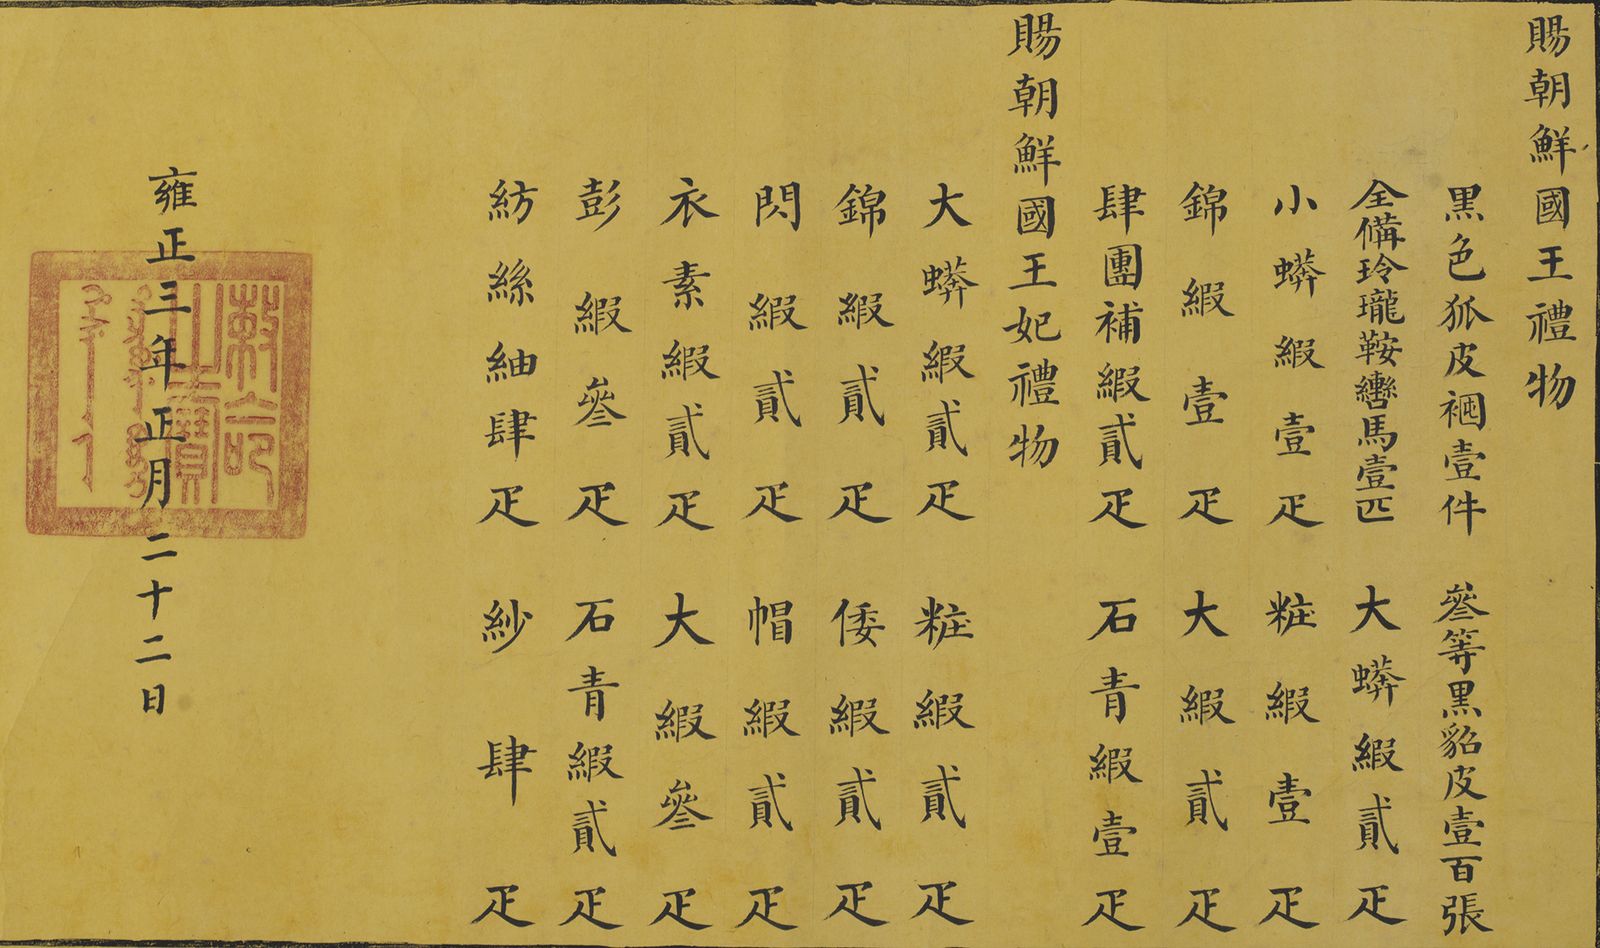 賜朝鮮國王禮物
黑色狐皮壹件 叄等黑貂皮壹百張
全備玲瓏鞍轡馬壹匹 大蟒緞貳疋
小蟒緞壹疋 粧緞壹疋
錦緞壹疋 大緞貳疋
肆團補緞貳疋 石青緞壹疋
賜朝鮮國王妃禮物
大蟒緞貳疋 粧緞貳疋
錦緞貳疋 倭緞貳疋
閃緞貳疋 帽緞貳疋
衣素緞貳疋 大緞叄疋
彭緞叄疋 石青緞貳疋
紡絲紬肆疋 紗肆疋
雍正三年正月二十二日
敕命之寶